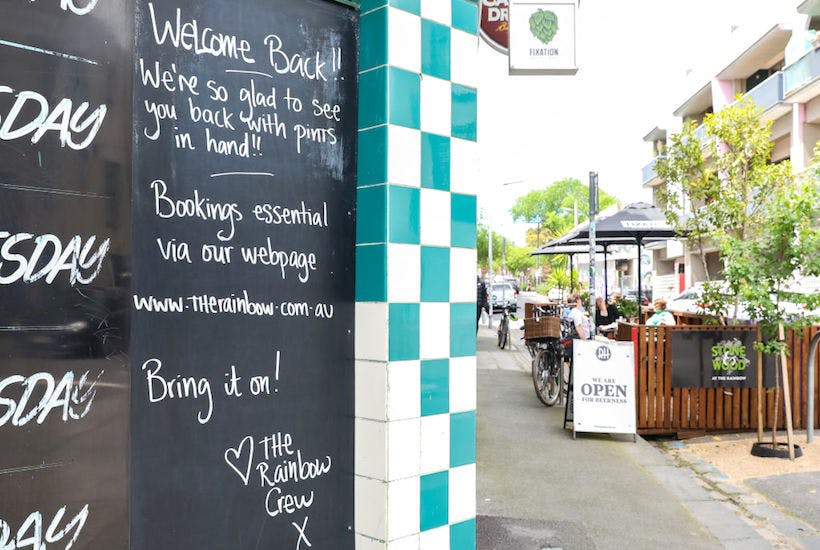 SDAY
ESDAY
SDAY
DAY
Welcome Back!!
We're so glad to see
you back with pints
in hand!!
Bookings essential
via our webpage
www.therainbow.com.au
Bring it on!
♡ THE
Rainbow
Crew
X
FIXATION
RH
WE ARE
OPEN
FOR BEERNESS
STONE &
WOOD
AT THE RAINBOW